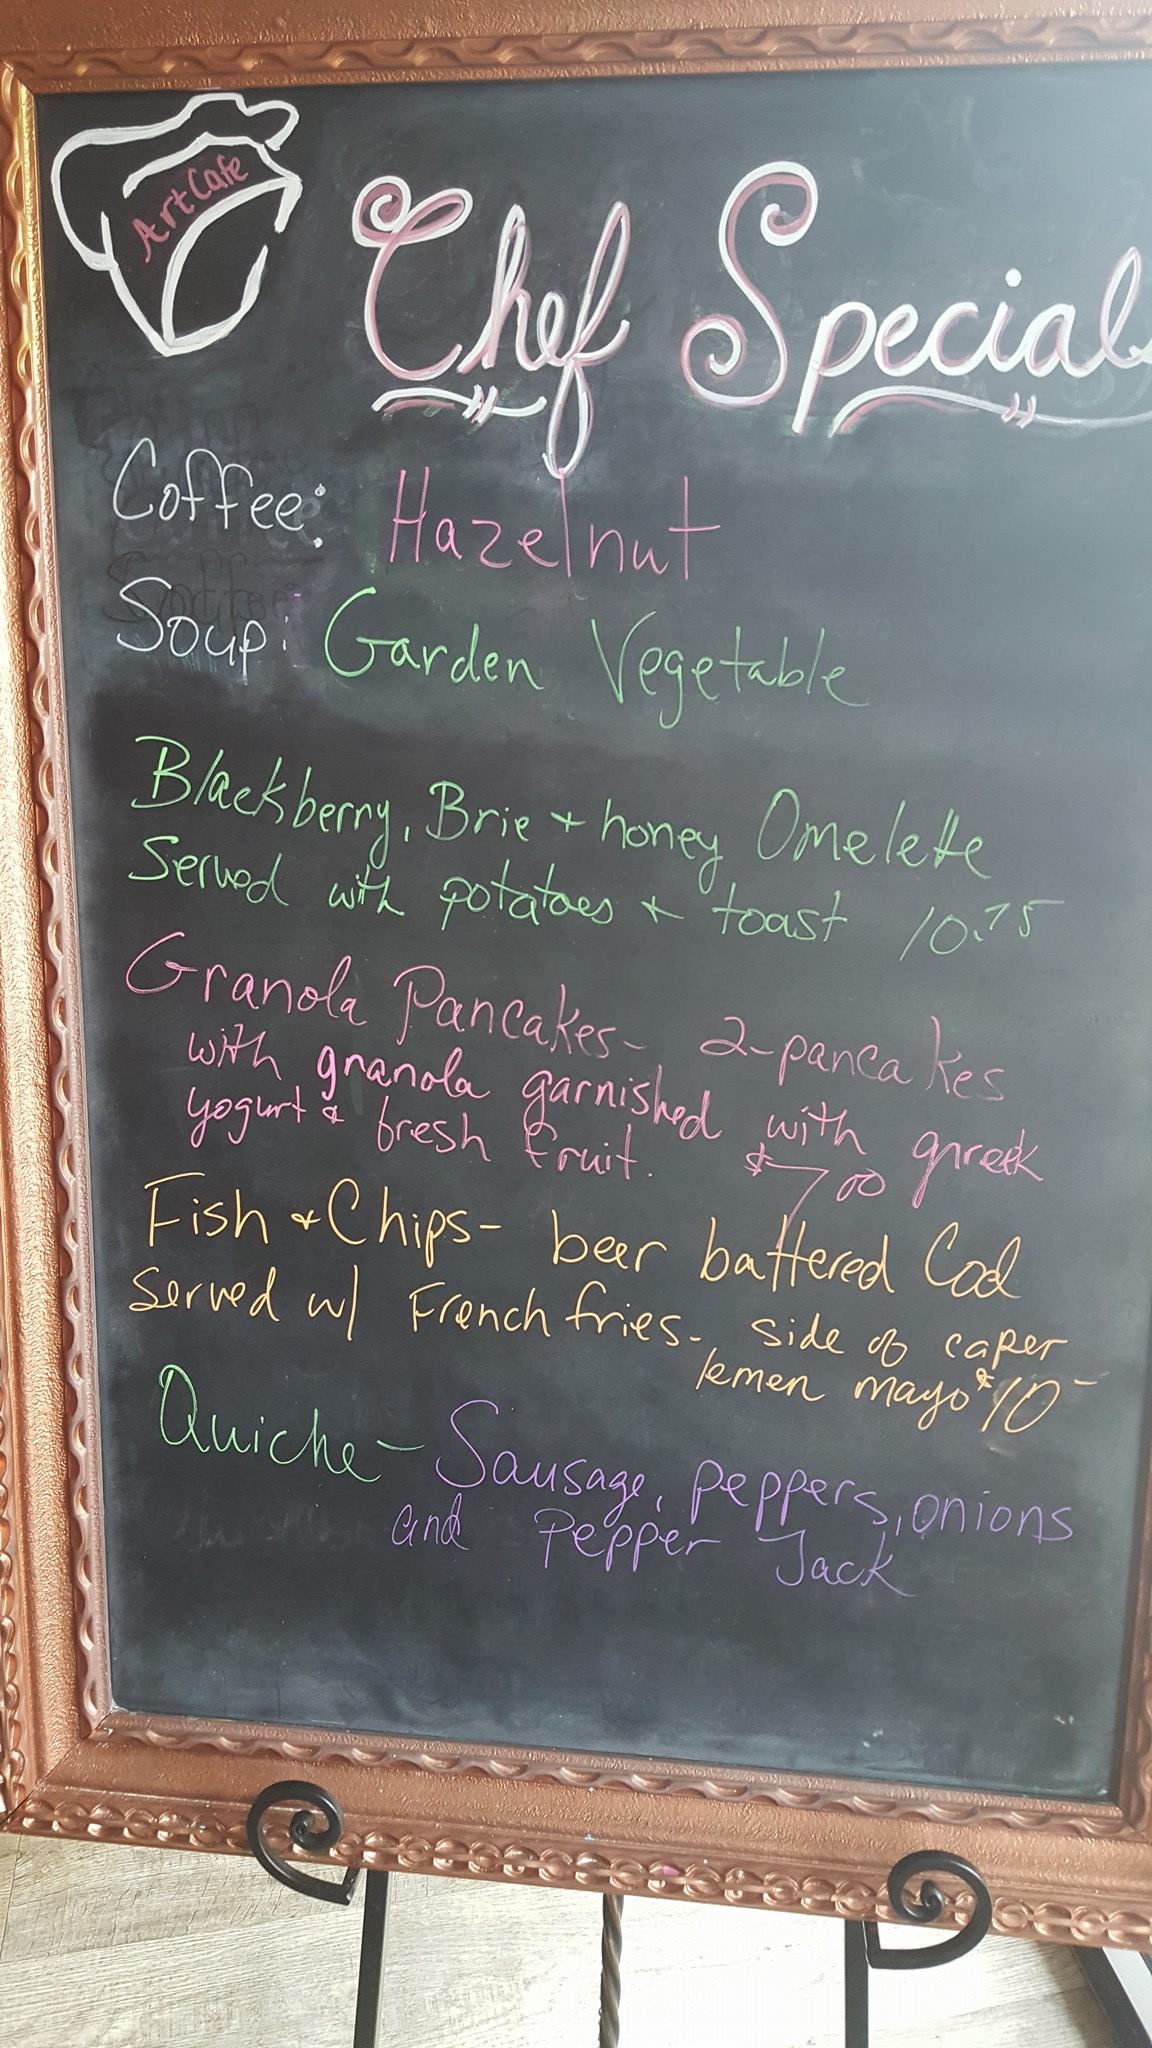 Art Cafe
Chef Specials
Coffee: Hazelnut
Soup: Garden Vegetable
Blackberry, Brie + honey Omelette
Served with potatoes + toast 10.75
Granola Pancakes - 2 - pancakes
with granola garnished with greek
yogurt & fresh fruit. $7.00
Fish & Chips - beer battered Cod
Served w/ French fries - side of caper
lemen mayo $10-
Quiche - Sausage, peppers, onions
and Pepper Jack